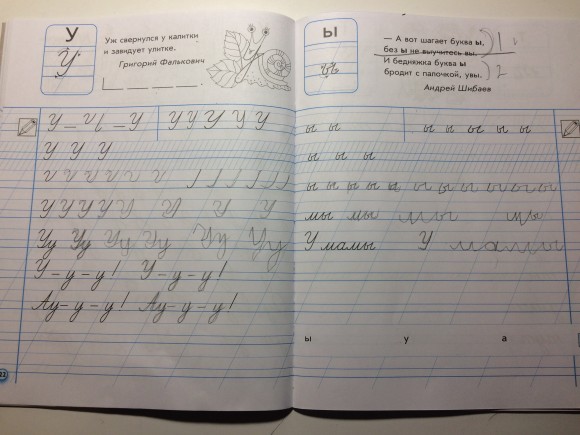 У
У
Уж свернулся у калитки
и завидует улитке.
Григорий Фалькович
У У У У У У У
У У У
У У У У У У У У
Уу Уу Уу Уу Уу Уу
У-у-у! У-у-у!
Ау-у-у! Ау-у-у!
22
Ы
ы
— А вот шагает буква ы,
без ы не выучитесь вы. 1
И бедняжка буква ы
бродит с палочкой, увы. 2
Андрей Шибаев
ы ы ы ы ы ы ы
ы ы ы
ы ы ы ы ы ы ы ы ы ы ы ы
мы мы мы мы
У мамы У мамы
ы у а